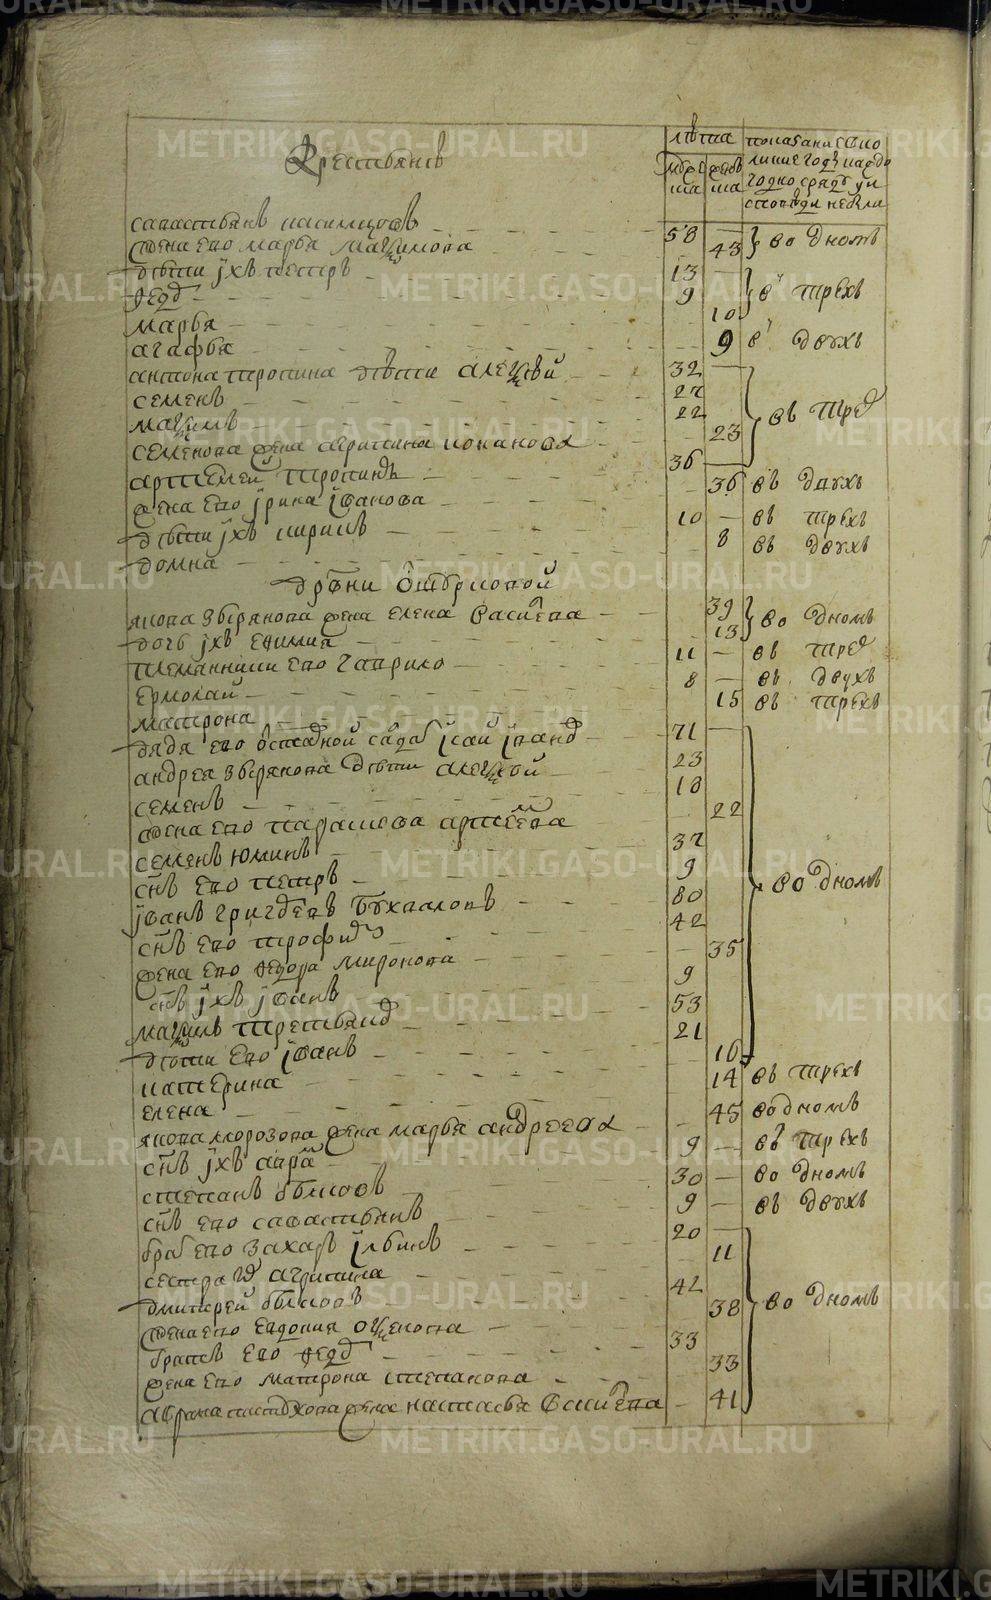 METRIKI.GASO-URAL.RU
крестьянъ
лѣта
мужеска
женска
савастьянъ касимцовъ 58
жена ево марѳа маѯимова 43 во одномъ
дѣти ихъ петръ 13
ѳедоръ 9 в трехъ
марѳа 10
агафья 9 в двухъ
антона тропина дѣти алеѯѣй 32
семенъ 27
маѯимъ 22 въ трех
семенова жена агрипина кононова 23
артемей тропинъ 36
жена ево ирина иванова 36 въ двухъ
дѣти ихъ кирилъ 10 въ трехъ
домна 8 въ двухъ
дрвни
якова звѣрякова жена елена василева 39 во одномъ
дочь ихъ еѳимиа 13
племянники ево гаврило 11 въ трех
ермолай 8 въ двухъ
матрона 15 въ трехъ
дядя ево отставной салдат исай иванов 71
андрея звѣрякова дѣти алеѯѣй 23
семенъ 18
жена ево парасковя артемева 22
семенъ юминъ 37
снъ ево петръ 9 во одномъ
иванъ григоревъ бухваловъ 80
снъ ево трофимъ 42
жена ево ѳедора миронова 35
снъ ихъ иванъ 9
маѯимъ третьяков 53
дѣти ево иванъ 21
катерина 16
елена 14 въ трехъ
якова морозова жена марѳа андреева 45 во одномъ
снъ ихъ аврам 9 въ трехъ
степанъ бѣлковъ 30 во одномъ
снъ ево савастьянъ 9 въ двухъ
брат ево захаръ ильинъ 20
сестра ево агрипина 11
дмитрей бѣлковъ 42
жена ево евдокия аѯенова 38 во одномъ
братъ ево ѳедоръ 33
жена ево матрона степанова 33
аврама пастухова жена настасья василева 41